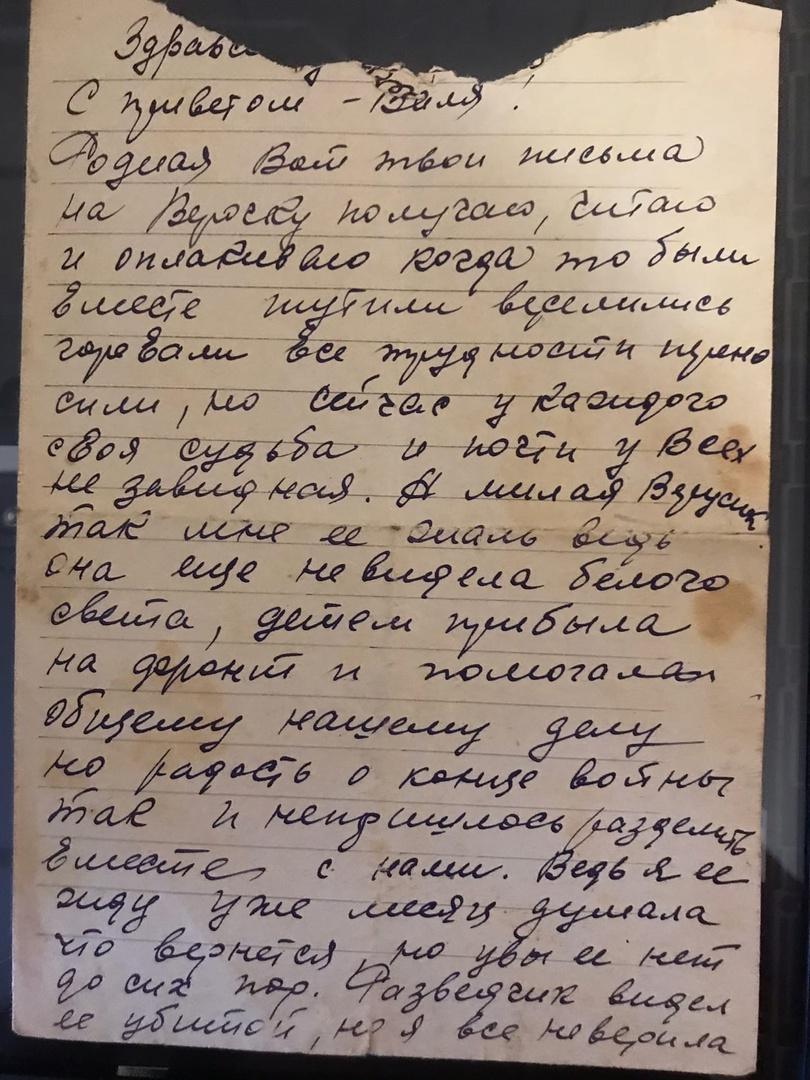 Здравс
С приветом - Валя!
Родная Вот твои письма
на Вероску получаю, читаю
и оплакиваю когда то были
Вместе шутили веселились
горевали Все трудности прено
сили, но сейчас у каждого
своя судьба и почти у Всех
не завидная. А милая Верусик
так мне ее жаль ведь
она еще невидела белого
света, детем прибыла
на фронт и помогала
общему нашему делу
но радость о конце войны
так и непришлось разделить
Вместе с нами. Ведь я ее
жду уже месяц думала
что вернется, но увы ее нет
до сих пор. Разведчик видел
ее убитой, но я все неверила